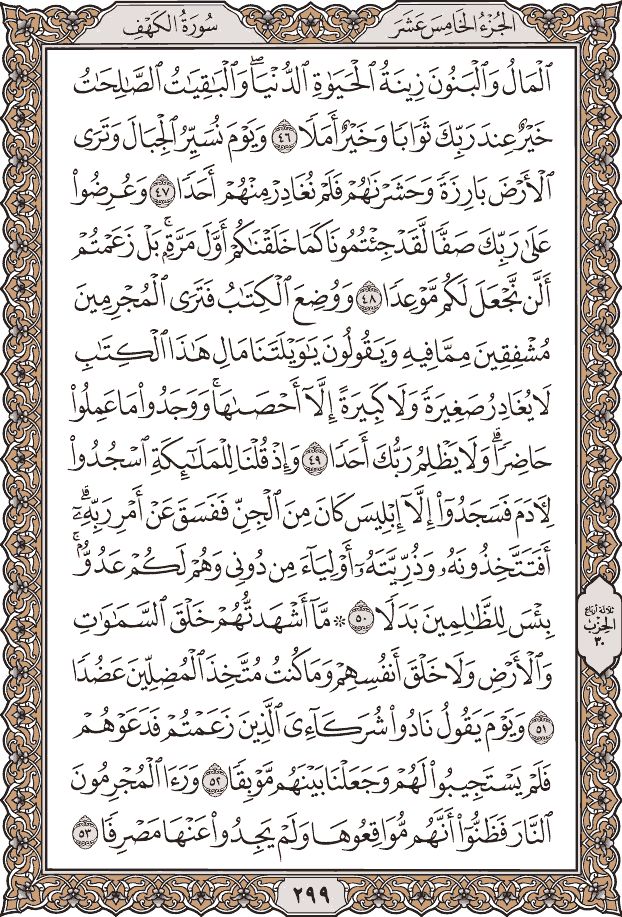 الجُزْءُ الخَامِسَ عَشَرَ
سُورَةُ الكَهْفِ
ٱلْمَالُ وَٱلْبَنُونَ زِينَةُ ٱلْحَيَوٰةِ ٱلدُّنْيَاۖ وَٱلْبَٰقِيَٰتُ ٱلصَّٰلِحَٰتُ
خَيْرٌ عِندَ رَبِّكَ ثَوَابًا وَخَيْرٌ أَمَلًا ٤٦ وَيَوْمَ نُسَيِّرُ ٱلْجِبَالَ وَتَرَى
ٱلْأَرْضَ بَارِزَةً وَحَشَرْنَٰهُمْ فَلَمْ نُغَادِرْ مِنْهُمْ أَحَدًا ٤٧ وَعُرِضُوا۟
عَلَىٰ رَبِّكَ صَفًّا لَّقَدْ جِئْتُمُونَا كَمَا خَلَقْنَٰكُمْ أَوَّلَ مَرَّةٍۭۚ بَلْ زَعَمْتُمْ
أَلَّن نَّجْعَلَ لَكُم مَّوْعِدًا ٤٨ وَوُضِعَ ٱلْكِتَٰبُ فَتَرَى ٱلْمُجْرِمِينَ
مُشْفِقِينَ مِمَّا فِيهِ وَيَقُولُونَ يَٰوَيْلَتَنَا مَالِ هَٰذَا ٱلْكِتَٰبِ
لَا يُغَادِرُ صَغِيرَةً وَلَا كَبِيرَةً إِلَّآ أَحْصَىٰهَاۚ وَوَجَدُوا۟ مَا عَمِلُوا۟
حَاضِرًاۗ وَلَا يَظْلِمُ رَبُّكَ أَحَدًا ٤٩ وَإِذْ قُلْنَا لِلْمَلَٰٓئِكَةِ ٱسْجُدُوا۟
لِـَٔادَمَ فَسَجَدُوٓا۟ إِلَّآ إِبْلِيسَ كَانَ مِنَ ٱلْجِنِّ فَفَسَقَ عَنْ أَمْرِ رَبِّهِۦٓۗ
أَفَتَتَّخِذُونَهُۥ وَذُرِّيَّتَهُۥٓ أَوْلِيَآءَ مِن دُونِى وَهُمْ لَكُمْ عَدُوٌّۢۚ
بِئْسَ لِلظَّٰلِمِينَ بَدَلًا ٥٠ ۞ مَّآ أَشْهَدتُّهُمْ خَلْقَ ٱلسَّمَٰوَٰتِ
وَٱلْأَرْضِ وَلَا خَلْقَ أَنفُسِهِمْ وَمَا كُنتُ مُتَّخِذَ ٱلْمُضِلِّينَ عَضُدًا
٥١ وَيَوْمَ يَقُولُ نَادُوا۟ شُرَكَآءِىَ ٱلَّذِينَ زَعَمْتُمْ فَدَعَوْهُمْ
فَلَمْ يَسْتَجِيبُوا۟ لَهُمْ وَجَعَلْنَا بَيْنَهُم مَّوْبِقًا ٥٢ وَرَءَا ٱلْمُجْرِمُونَ
ٱلنَّارَ فَظَنُّوٓا۟ أَنَّهُم مُّوَاقِعُوهَا وَلَمْ يَجِدُوا۟ عَنْهَا مَصْرِفًا ٥٣
ثلاثة أرباع
الحزب
٣٠
٢٩٩